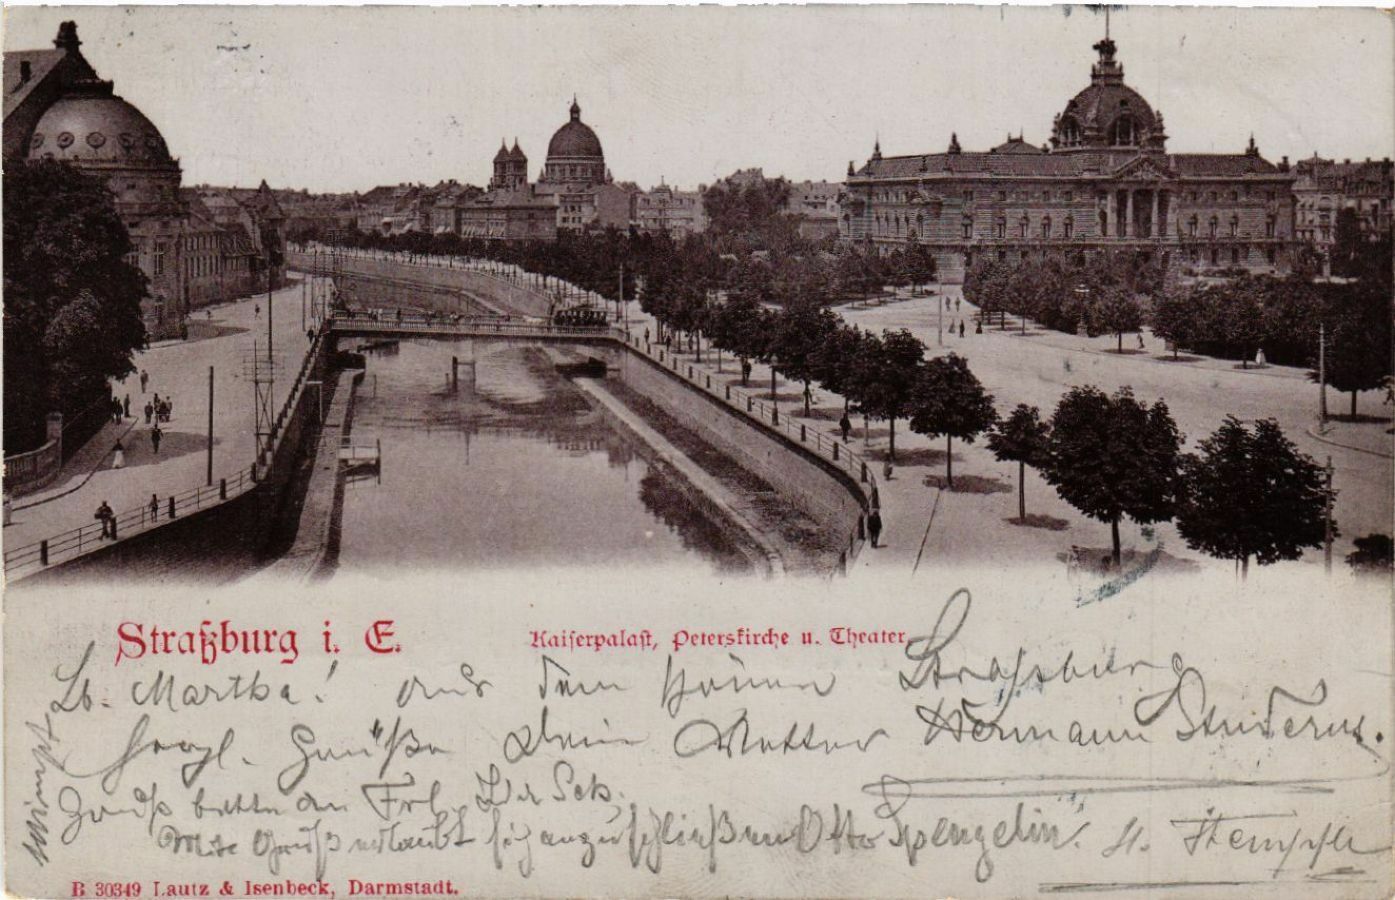 Straßburg i. E.
Kaiserpalast, Peterskirche u. Theater.
Lb. Martha! aus dem schönen Strassburg
herzl. Grüße Dein Vetter Hermann Studerus.
Gruß bitte an Frl. Ida Sch.
Mit Gruß erlaubt sich anzuschließen Otto Spengelin. H. Stempfle
B 30349 Lautz & Isenbeck, Darmstadt.